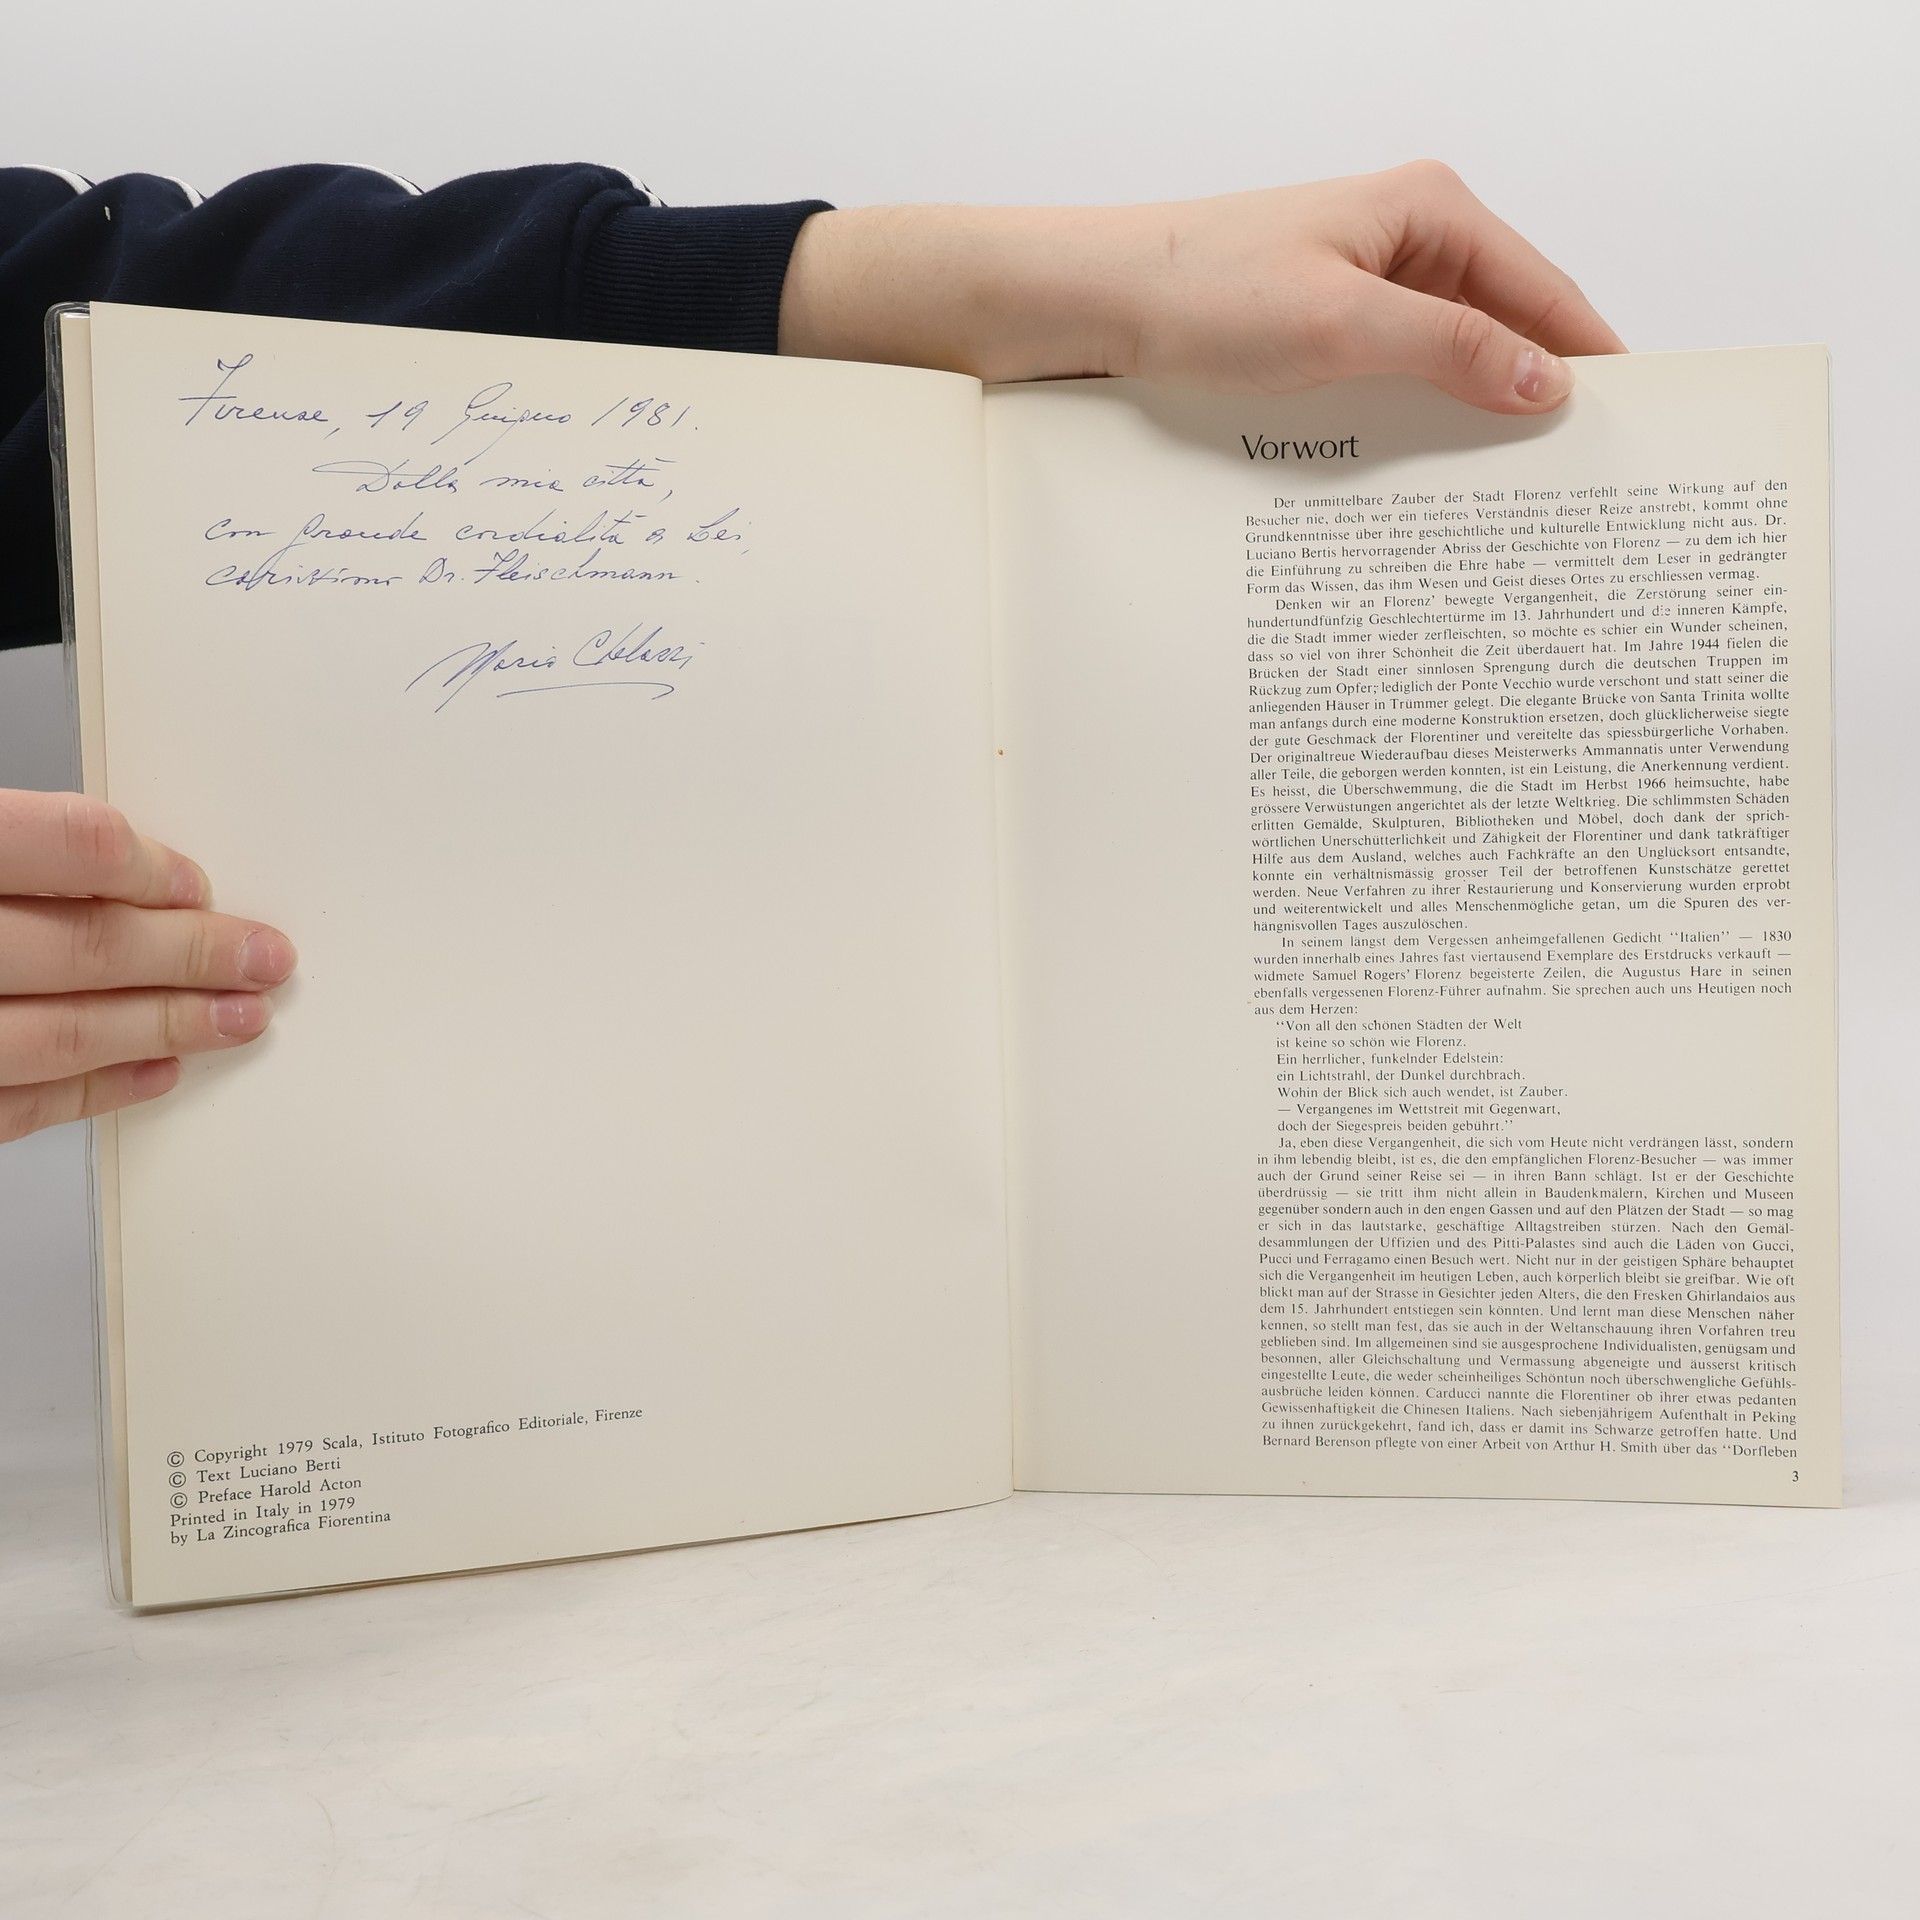 Firenze, 19 Giugno 1981.
Dalla mia città,
con grande cordialità a Lei,
carissimo Dr. Fleischmann.
Mario
© Copyright 1979 Scala, Istituto Fotografico Editoriale, Firenze
© Text Luciano Berti
© Preface Harold Acton
Printed in Italy in 1979
by La Zincografica Fiorentina
Vorwort
Der unmittelbare Zauber der Stadt Florenz verfehlt seine Wirkung auf den
Besucher nie, doch wer ein tieferes Verständnis dieser Reize anstrebt, kommt ohne
Grundkenntnisse über ihre geschichtliche und kulturelle Entwicklung nicht aus. Dr.
Luciano Bertis hervorragender Abriss der Geschichte von Florenz — zu dem ich hier
die Einführung zu schreiben die Ehre habe — vermittelt dem Leser in gedrängter
Form das Wissen, das ihm Wesen und Geist dieses Ortes zu erschliessen vermag.
Denken wir an Florenz' bewegte Vergangenheit, die Zerstörung seiner ein-
hundertundfünfzig Geschlechtertürme im 13. Jahrhundert und die inneren Kämpfe,
die die Stadt immer wieder zerfleischten, so möchte es schier ein Wunder scheinen,
dass so viel von ihrer Schönheit die Zeit überdauert hat. Im Jahre 1944 fielen die
Brücken der Stadt einer sinnlosen Sprengung durch die deutschen Truppen im
Rückzug zum Opfer; lediglich der Ponte Vecchio wurde verschont und statt seiner die
anliegenden Häuser in Trümmer gelegt. Die elegante Brücke von Santa Trinita wollte
man anfangs durch eine moderne Konstruktion ersetzen, doch glücklicherweise siegte
der gute Geschmack der Florentiner und vereitelte das spiessbürgerliche Vorhaben.
Der originaltreue Wiederaufbau dieses Meisterwerks Ammannatis unter Verwendung
aller Teile, die geborgen werden konnten, ist ein Leistung, die Anerkennung verdient.
Es heisst, die Überschwemmung, die die Stadt im Herbst 1966 heimsuchte, habe
grössere Verwüstungen angerichtet als der letzte Weltkrieg. Die schlimmsten Schäden
erlitten Gemälde, Skulpturen, Bibliotheken und Möbel, doch dank der sprich-
wörtlichen Unerschütterlichkeit und Zähigkeit der Florentiner und dank tatkräftiger
Hilfe aus dem Ausland, welches auch Fachkräfte an den Unglücksort entsandte,
konnte ein verhältnismässig grosser Teil der betroffenen Kunstschätze gerettet
werden. Neue Verfahren zu ihrer Restaurierung und Konservierung wurden erprobt
und weiterentwickelt und alles Menschenmögliche getan, um die Spuren des ver-
hängnisvollen Tages auszulöschen.
In seinem längst dem Vergessen anheimgefallenen Gedicht “Italien” — 1830
wurden innerhalb eines Jahres fast viertausend Exemplare des Erstdrucks verkauft —
widmete Samuel Rogers' Florenz begeisterte Zeilen, die Augustus Hare in seinen
ebenfalls vergessenen Florenz-Führer aufnahm. Sie sprechen auch uns Heutigen noch
aus dem Herzen:
“Von all den schönen Städten der Welt
ist keine so schön wie Florenz.
Ein herrlicher, funkelnder Edelstein:
ein Lichtstrahl, der Dunkel durchbrach.
Wohin der Blick sich auch wendet, ist Zauber.
— Vergangenes im Wettstreit mit Gegenwart,
doch der Siegespreis beiden gebührt.”
Ja, eben diese Vergangenheit, die sich vom Heute nicht verdrängen lässt, sondern
in ihm lebendig bleibt, ist es, die den empfänglichen Florenz-Besucher — was immer
auch der Grund seiner Reise sei — in ihren Bann schlägt. Ist er der Geschichte
überdrüssig — sie tritt ihm nicht allein in Baudenkmälern, Kirchen und Museen
gegenüber sondern auch in den engen Gassen und auf den Plätzen der Stadt — so mag
er sich in das lautstarke, geschäftige Alltagstreiben stürzen. Nach den Gemäl-
desammlungen der Uffizien und des Pitti-Palastes sind auch die Läden von Gucci,
Pucci und Ferragamo einen Besuch wert. Nicht nur in der geistigen Sphäre behauptet
sich die Vergangenheit im heutigen Leben, auch körperlich bleibt sie greifbar. Wie oft
blickt man auf der Strasse in Gesichter jeden Alters, die den Fresken Ghirlandaios aus
dem 15. Jahrhundert entstiegen sein könnten. Und lernt man diese Menschen näher
kennen, so stellt man fest, das sie auch in der Weltanschauung ihren Vorfahren treu
geblieben sind. Im allgemeinen sind sie ausgesprochene Individualisten, genügsam und
besonnen, aller Gleichschaltung und Vermassung abgeneigte und äusserst kritisch
eingestellte Leute, die weder scheinheiliges Schöntun noch überschwengliche Gefühls-
ausbrüche leiden können. Carducci nannte die Florentiner ob ihrer etwas pedanten
Gewissenhaftigkeit die Chinesen Italiens. Nach siebenjährigem Aufenthalt in Peking
zu ihnen zurückgekehrt, fand ich, dass er damit ins Schwarze getroffen hatte. Und
Bernard Berenson pflegte von einer Arbeit von Arthur H. Smith über das “Dorfleben
3